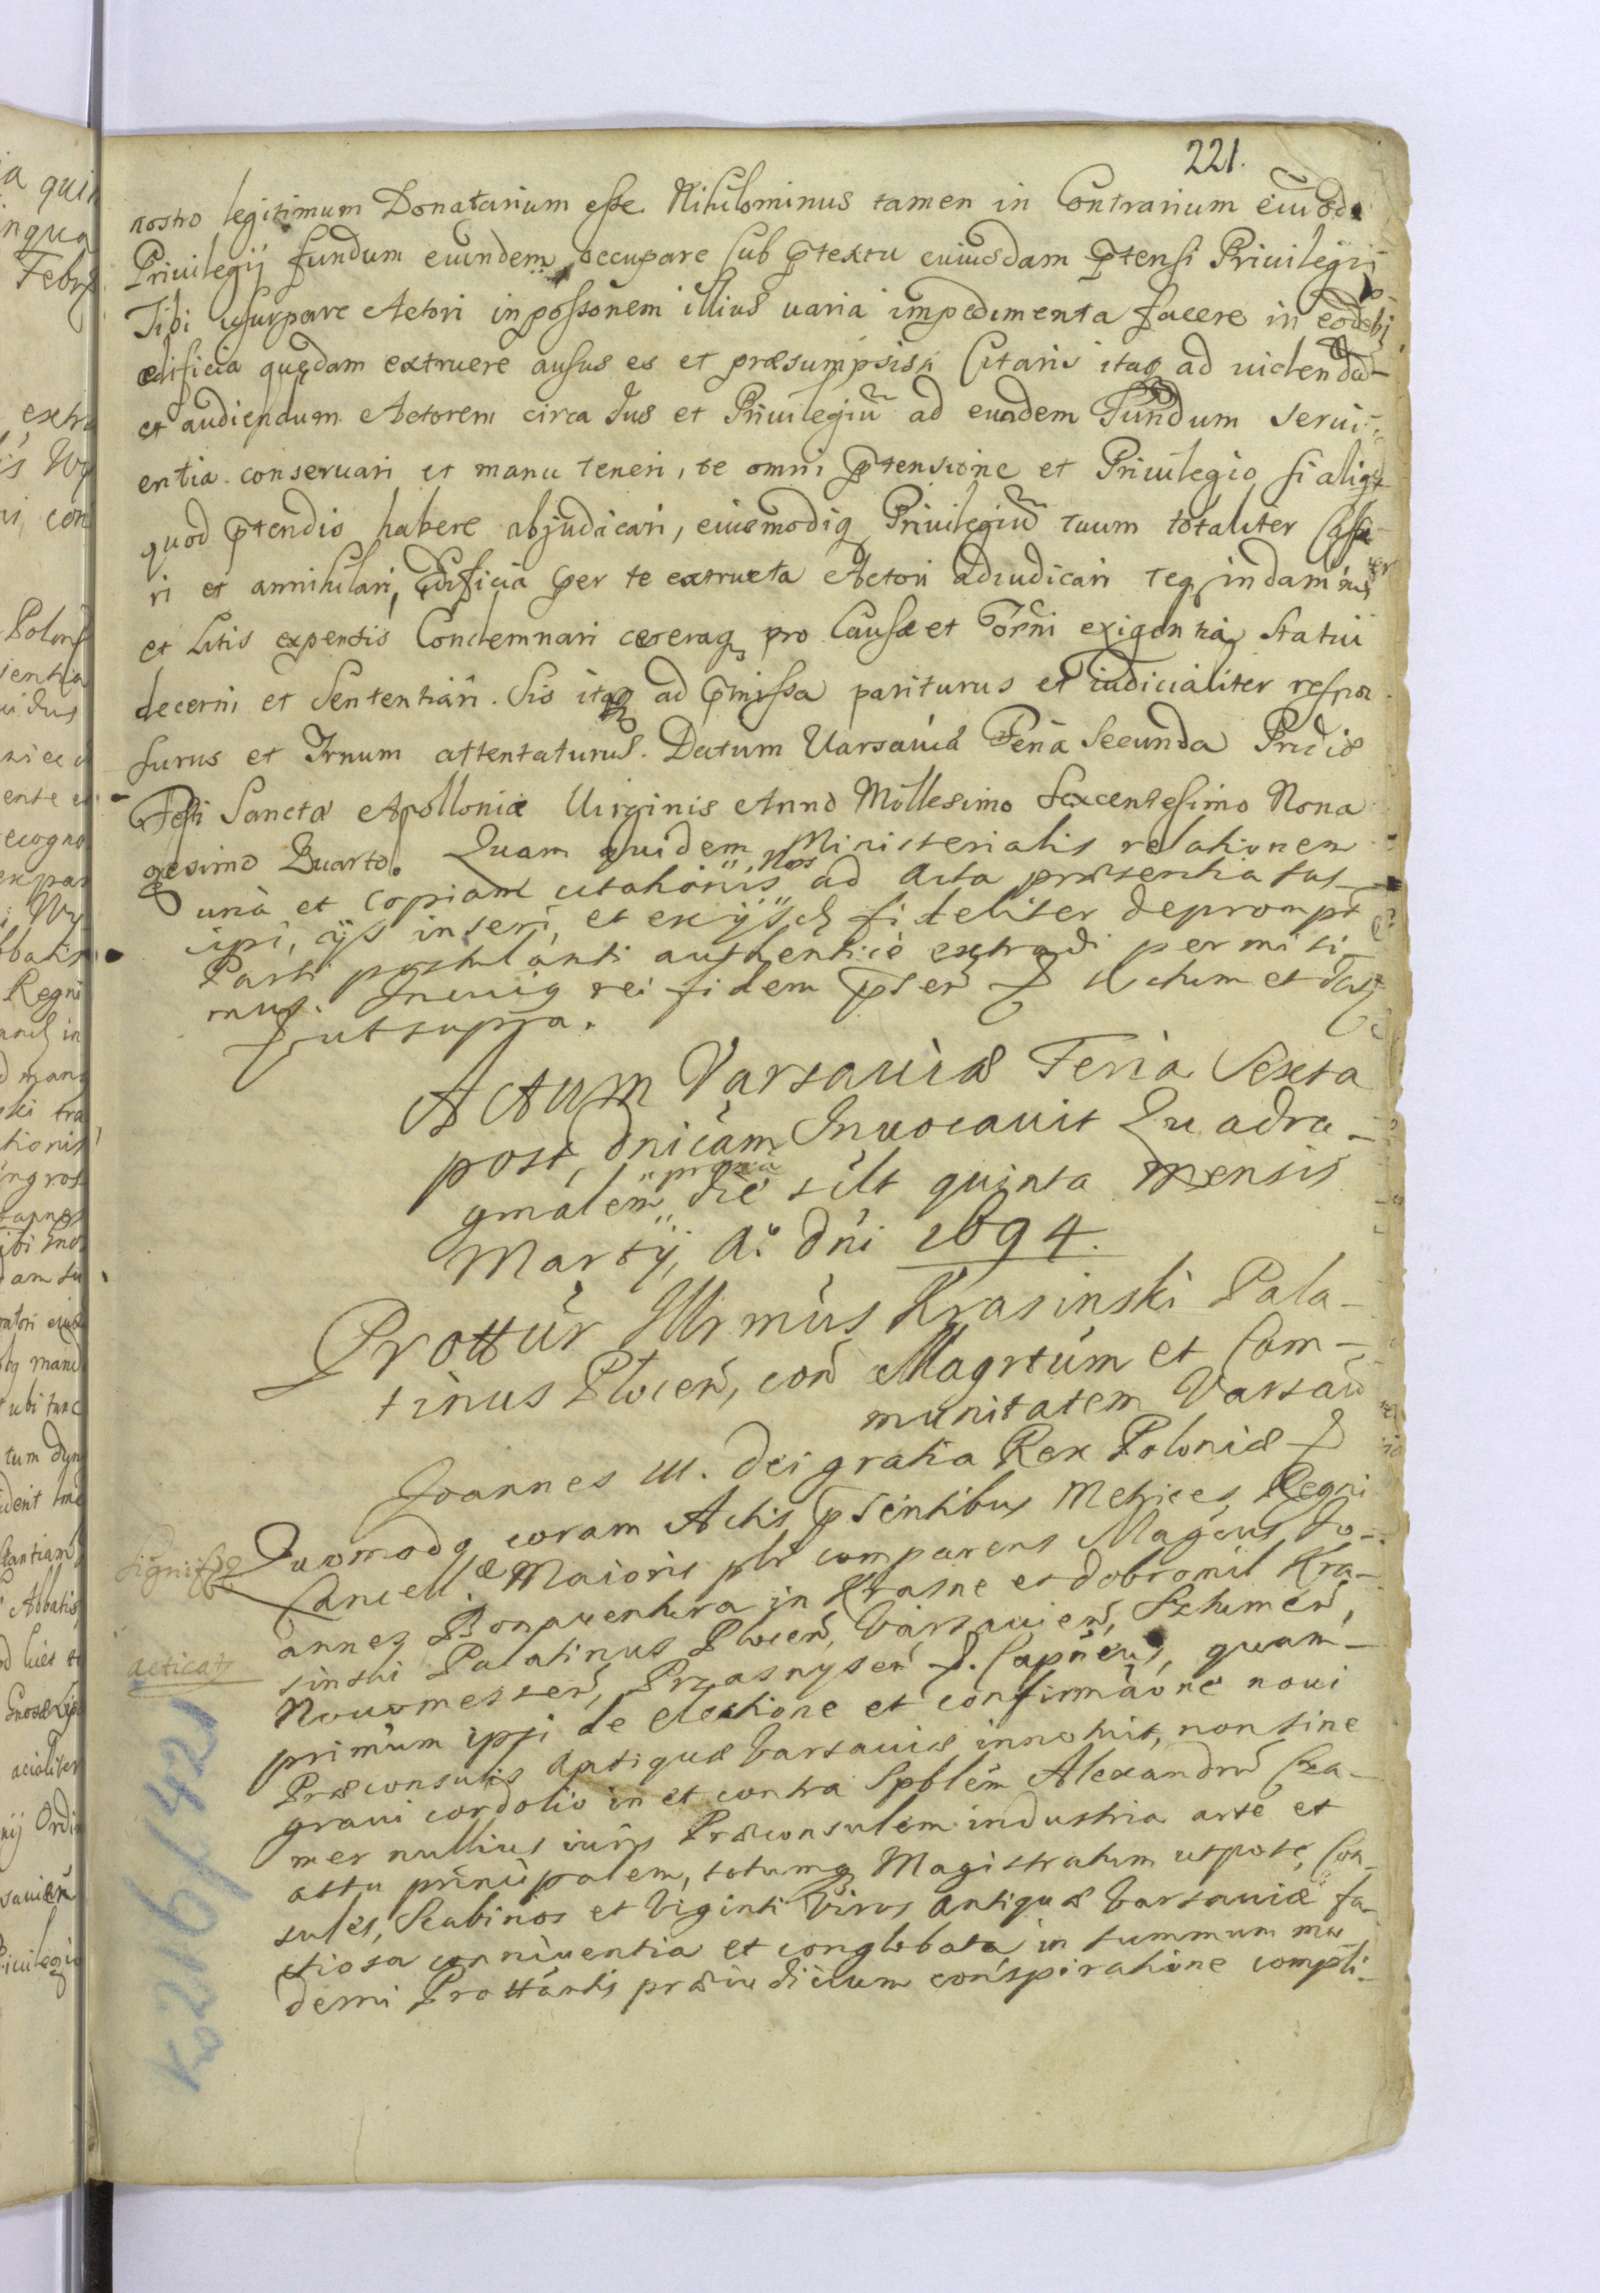 221.
nostro legitimum Donatarium esse Nihilominus tamen in Contrarium eiusde
Priuilegij fundum eundem occupare sub ptextu cuiusdam ptensi Priuilegij
Tibi usurpare Actori in possonem illius uaria impedimenta facere in eodē
ædificia quędam extruere ausus es et præsumpsisti Citaris itaq ad uidenda-
et audiendum Actorem circa Jus et Priuilegiū ad eundem Fundum serui-
entia conseruari et manu teneri, te omni ptensione et Priuilegio si aliq
quod ptendis habere abjudicari, eiusmodiq Priuilegiū tuum totaliter Cassa-
ri et annihilari, Ædificia per te extructa Actori adiudicari teq in damnis
et Litis expensis Condemnari ceteraq pro Causæ et Tôrni exigentia Statui
decerni et Sententiari. Sis itaq ad pmissa pariturus et iudicialiter respon
surus et Trnum attentaturus. Datum Varsauiæ Feria Secunda Pridie
Festi Sanctæ Apolloniæ Uirginis Anno Millesimo Sexcentesimo Nona
gesimo Quarto. Quam quidem Ministerialis relationem
unà et copiam citationis Nos ad Acta præsentia sus-
cipi, ijs inseri, et ex ijsdē fideliter deprompt
Parti postulanti authenticè extradi permisi-
mus. In cuiq rei fidem pser Actum et dat
ut supra.
Actum Varsauiæ Feria Sexta
post dnicam Inuocauit Quadra-
gmalem prima die scilt quinta mensis
Martij, A.º dni 1694.
Prottur Illrmus Krasinski Pala-
tinus Plocen̄, con̄ Magrtum et Com-
munitatem Varsau̅
Joannes III. Dei gratia Rex Poloniæ
Significo Quomodq coram Actis psentibus Metrices Regni
Cancell.æ Maioris plr comparens Magcus Jo-
annes Bonauentura in Krasne et Dobromil Kra-
acticat sinski Palatinus Plocen̄, Varsauien̄, Sztumen̄,
Nouomesten̄, Przasnysen̄ Capneus, quam-
primum ipsi de electione et confirmaône noui
Præconsulis Antiquæ Varsauiæ innotuit, non sine
graui cordolio in et contra Spblem Alexandrū Cza-
mer nullius iuris Præconsulem industria arte et
astu principalem, totumq Magistratum utpote Con-
sules, Scabinos et Viginti Viros Antiquæ Varsauiæ fa-
ctiosa conniuentia et conglobata in summum mo-
derni Prottantis præiudicium conspiratione compli-
K. 216/42